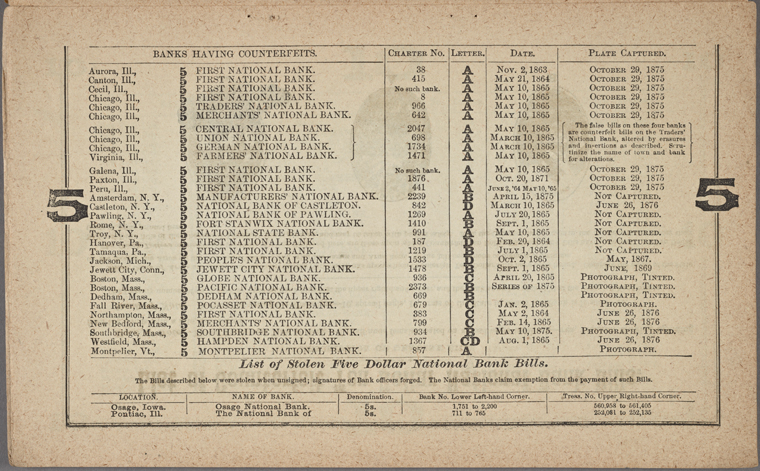 BANKS HAVING COUNTERFEITS. CHARTER No. LETTER. DATE. PLATE CAPTURED.
Aurora, Ill., 5 FIRST NATIONAL BANK. 38 A Nov. 2, 1863 OCTOBER 29, 1875
Canton, Ill., 5 FIRST NATIONAL BANK. 415 A MAY 21, 1864 OCTOBER 29, 1875
Cecil, Ill., 5 FIRST NATIONAL BANK. No such bank. A MAY 10, 1865 OCTOBER 29, 1875
Chicago, Ill., 5 FIRST NATIONAL BANK. 8 A MAY 10, 1865 OCTOBER 29, 1875
Chicago, Ill., 5 TRADERS' NATIONAL BANK. 966 A MAY 10, 1865 OCTOBER 29, 1875
Chicago, Ill., 5 MERCHANTS' NATIONAL BANK. 642 A MAY 10, 1865 OCTOBER 29, 1875
Chicago, Ill., 5 CENTRAL NATIONAL BANK. 2047 A MAY 10, 1865
Chicago, Ill., 5 UNION NATIONAL BANK. 698 A MARCH 10, 1865
Chicago, Ill., 5 GERMAN NATIONAL BANK. 1734 A MARCH 10, 1865
Virginia, Ill., 5 FARMERS' NATIONAL BANK. 1471 A MAY 10, 1865
The false bills on these four banks
are counterfeit bills on the Traders'
National Bank, altered by erasures
and insertions as described. Scru-
tinize the name of town and bank
for alterations.
Galena, Ill., 5 FIRST NATIONAL BANK. No such bank. A MAY 10, 1865 OCTOBER 29, 1875
Paxton, Ill., 5 FIRST NATIONAL BANK. 1876 A OCT. 20, 1871 OCTOBER 29, 1875
Peru, Ill., 5 FIRST NATIONAL BANK. 441 A JUNE 2, '64 MAY 10, '65 OCTOBER 29, 1875
Amsterdam, N. Y., 5 MANUFACTURERS' NATIONAL BANK. 2239 B APRIL 15, 1875 NOT CAPTURED.
Castleton, N. Y., 5 NATIONAL BANK OF CASTLETON. 842 D MARCH 10, 1865 JUNE 26, 1876
Pawling, N. Y., 5 NATIONAL BANK OF PAWLING. 1269 A JULY 20, 1865 NOT CAPTURED.
Rome, N. Y., 5 FORT STANWIX NATIONAL BANK. 1410 B SEPT. 1, 1865 NOT CAPTURED.
Troy, N. Y., 5 NATIONAL STATE BANK. 991 A MAY 10, 1865 NOT CAPTURED.
Hanover, Pa., 5 FIRST NATIONAL BANK. 187 D FEB. 20, 1864 NOT CAPTURED.
Tamaqua, Pa., 5 FIRST NATIONAL BANK. 1219 B JULY 1, 1865 NOT CAPTURED.
Jackson, Mich., 5 PEOPLE'S NATIONAL BANK. 1533 D OCT. 2, 1865 MAY, 1867.
Jewett City, Conn., 5 JEWETT CITY NATIONAL BANK. 1478 B SEPT. 1, 1865 JUNE, 1869
Boston, Mass., 5 GLOBE NATIONAL BANK. 936 C APRIL 20, 1865 PHOTOGRAPH, TINTED.
Boston, Mass., 5 PACIFIC NATIONAL BANK. 2373 B SERIES OF 1875 PHOTOGRAPH, TINTED.
Dedham, Mass., 5 DEDHAM NATIONAL BANK. 669 B PHOTOGRAPH, TINTED.
Fall River, Mass., 5 POCASSET NATIONAL BANK. 679 C JAN. 2, 1865 PHOTOGRAPH.
Northampton, Mass., 5 FIRST NATIONAL BANK. 383 C MAY 2, 1864 JUNE 26, 1876
New Bedford, Mass., 5 MERCHANTS' NATIONAL BANK. 799 C FEB. 14, 1865 JUNE 26, 1876
Southbridge, Mass., 5 SOUTHBRIDGE NATIONAL BANK. 934 B MAY 10, 1875. PHOTOGRAPH, TINTED.
Westfield, Mass., 5 HAMPDEN NATIONAL BANK. 1367 CD AUG. 1, 1865 JUNE 26, 1876
Montpelier, Vt., 5 MONTPELIER NATIONAL BANK. 857 A PHOTOGRAPH.
5
5
List of Stolen Five Dollar National Bank Bills.
The Bills described below were stolen when unsigned; signatures of Bank officers forged. The National Banks claim exemption from the payment of such Bills.
LOCATION. NAME OF BANK. Denomination. Bank No. Lower Left-hand Corner. Treas. No. Upper Right-hand Corner.
Osage, Iowa. Osage National Bank. 5s. 1,751 to 2,200 560,958 to 561,405
Pontiac, Ill. The National Bank of 5s. 711 to 765 252,081 to 252,135